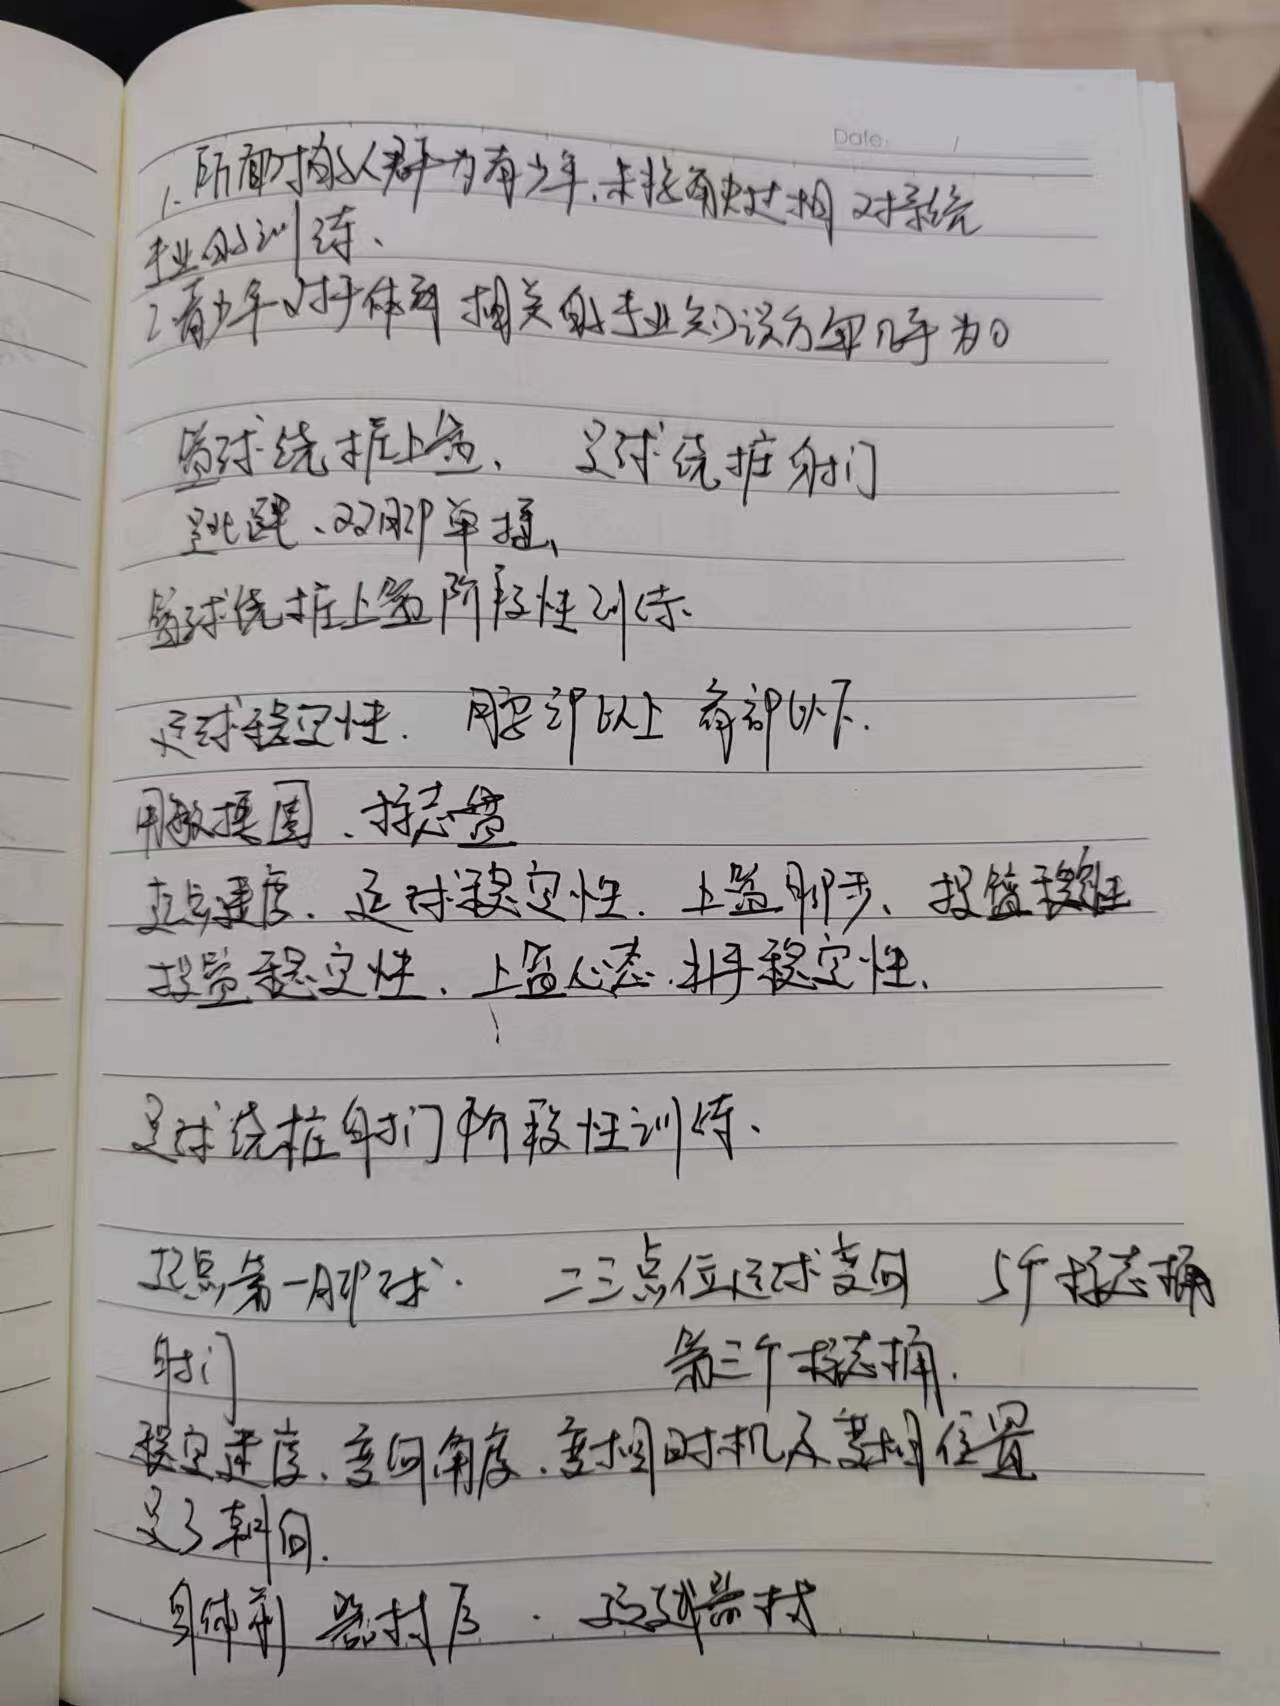 Date: /
1、所面对的人群为青少年、未接触过相对系统
专业的训练、
2 青少年对于体育相关的专业知识方面几乎为0
篮球绕桩上篮、 足球绕桩射门
跳跃、双脚单摇、
篮球绕桩上篮阶段性训练、
运球稳定性. 用腰部以上 肩部以下.
用敏捷圈、标志盘
支点速度、运球稳定性. 上篮脚步、投篮稳定性
投篮稳定性、上篮心态. 扑手稳定性、
足球绕桩射门阶段性训练、
起点第一脚球. 二三点位运球变向 5个标志桶
射门 第三个标志桶.
稳定速度、变向角度、变相时机及变相位置
足了朝向.
身体前 器材后. 器材